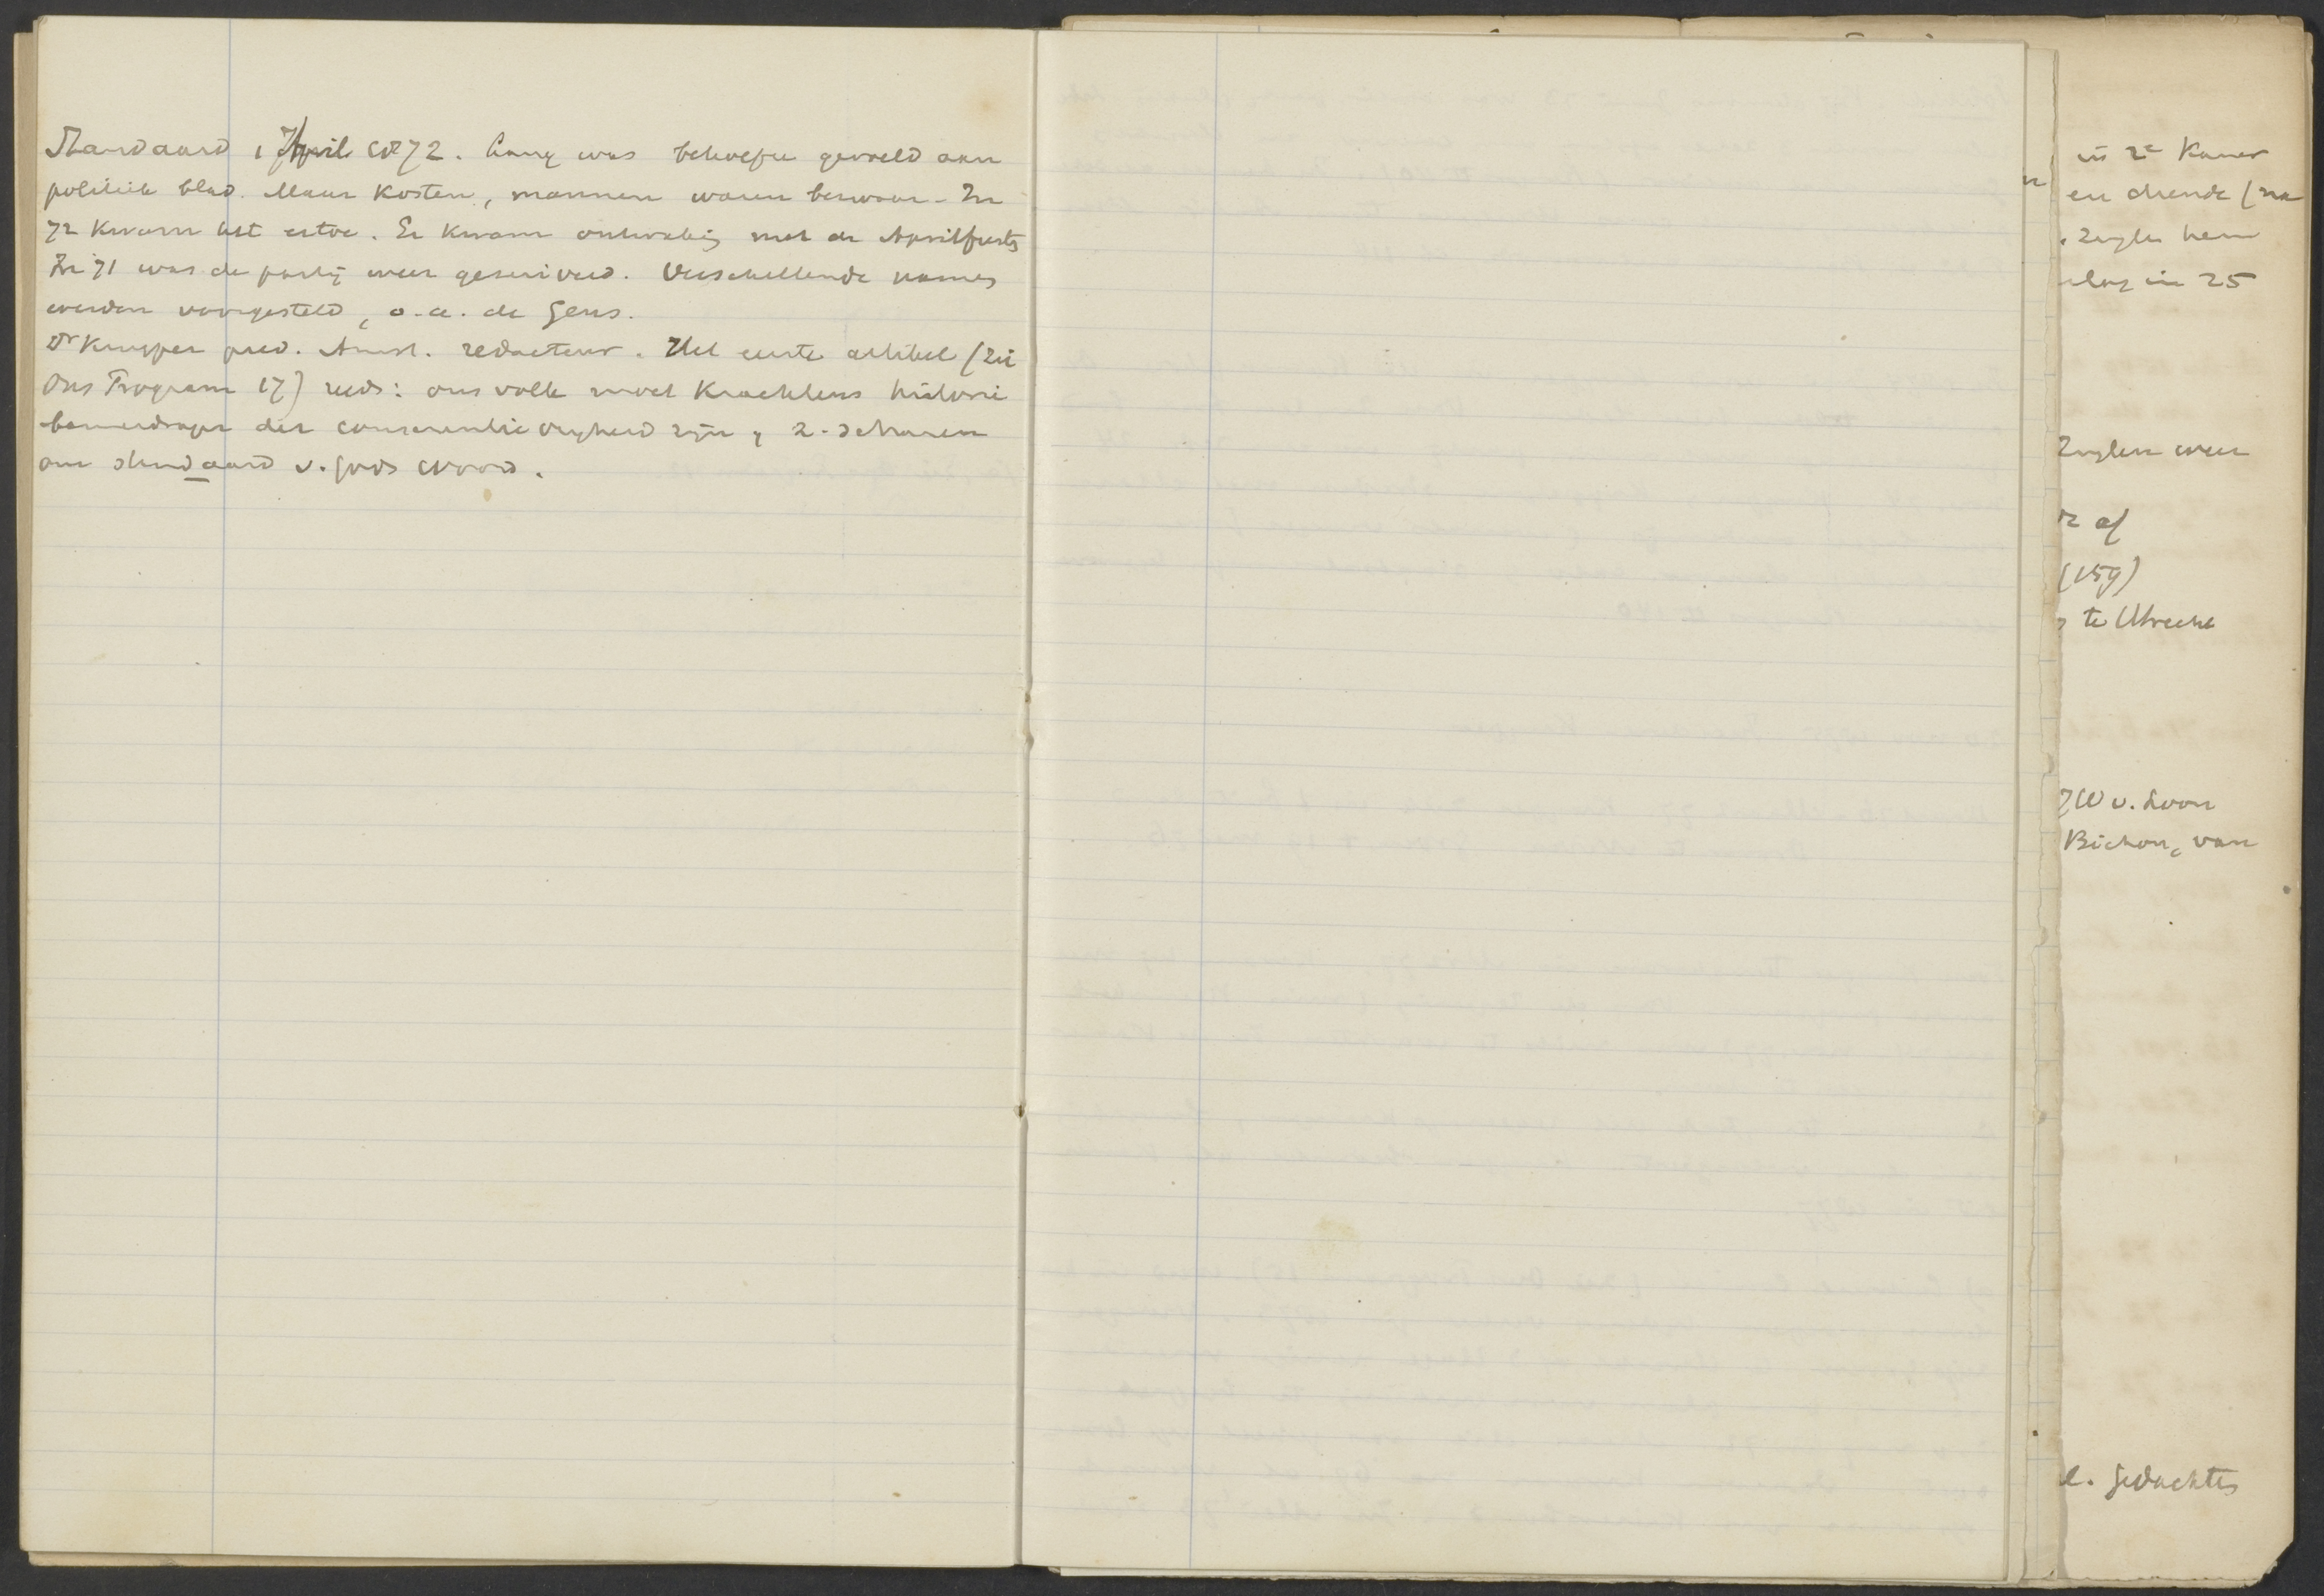 Standaard 1 April 1872. Lang was behoefte gevoeld aan
politiek blad. Maar kosten, mannen waren bezwaar. In
72 kwam het ertoe. Er kwam ontwaking met de Aprilfeesten
In 71 was de partij weer gesneuveld. Verschillende namen
werden voorgesteld, o.a. de Geus.
Dr Kuyper pred. Amst. redacteur. Het eerste artikel (zie
Ons Program 17) reeds: ons volk moet krachtens historie
banierdrager der conscientie vrijheid zijn, z. scharen
om standaard v. Gods Woord.
in 2e Kamer
en diende (na
Zuylen hem
in 25
Zuylen weer
af
(159)
te Utrecht
v. Loon
Bichon, van
gedachten